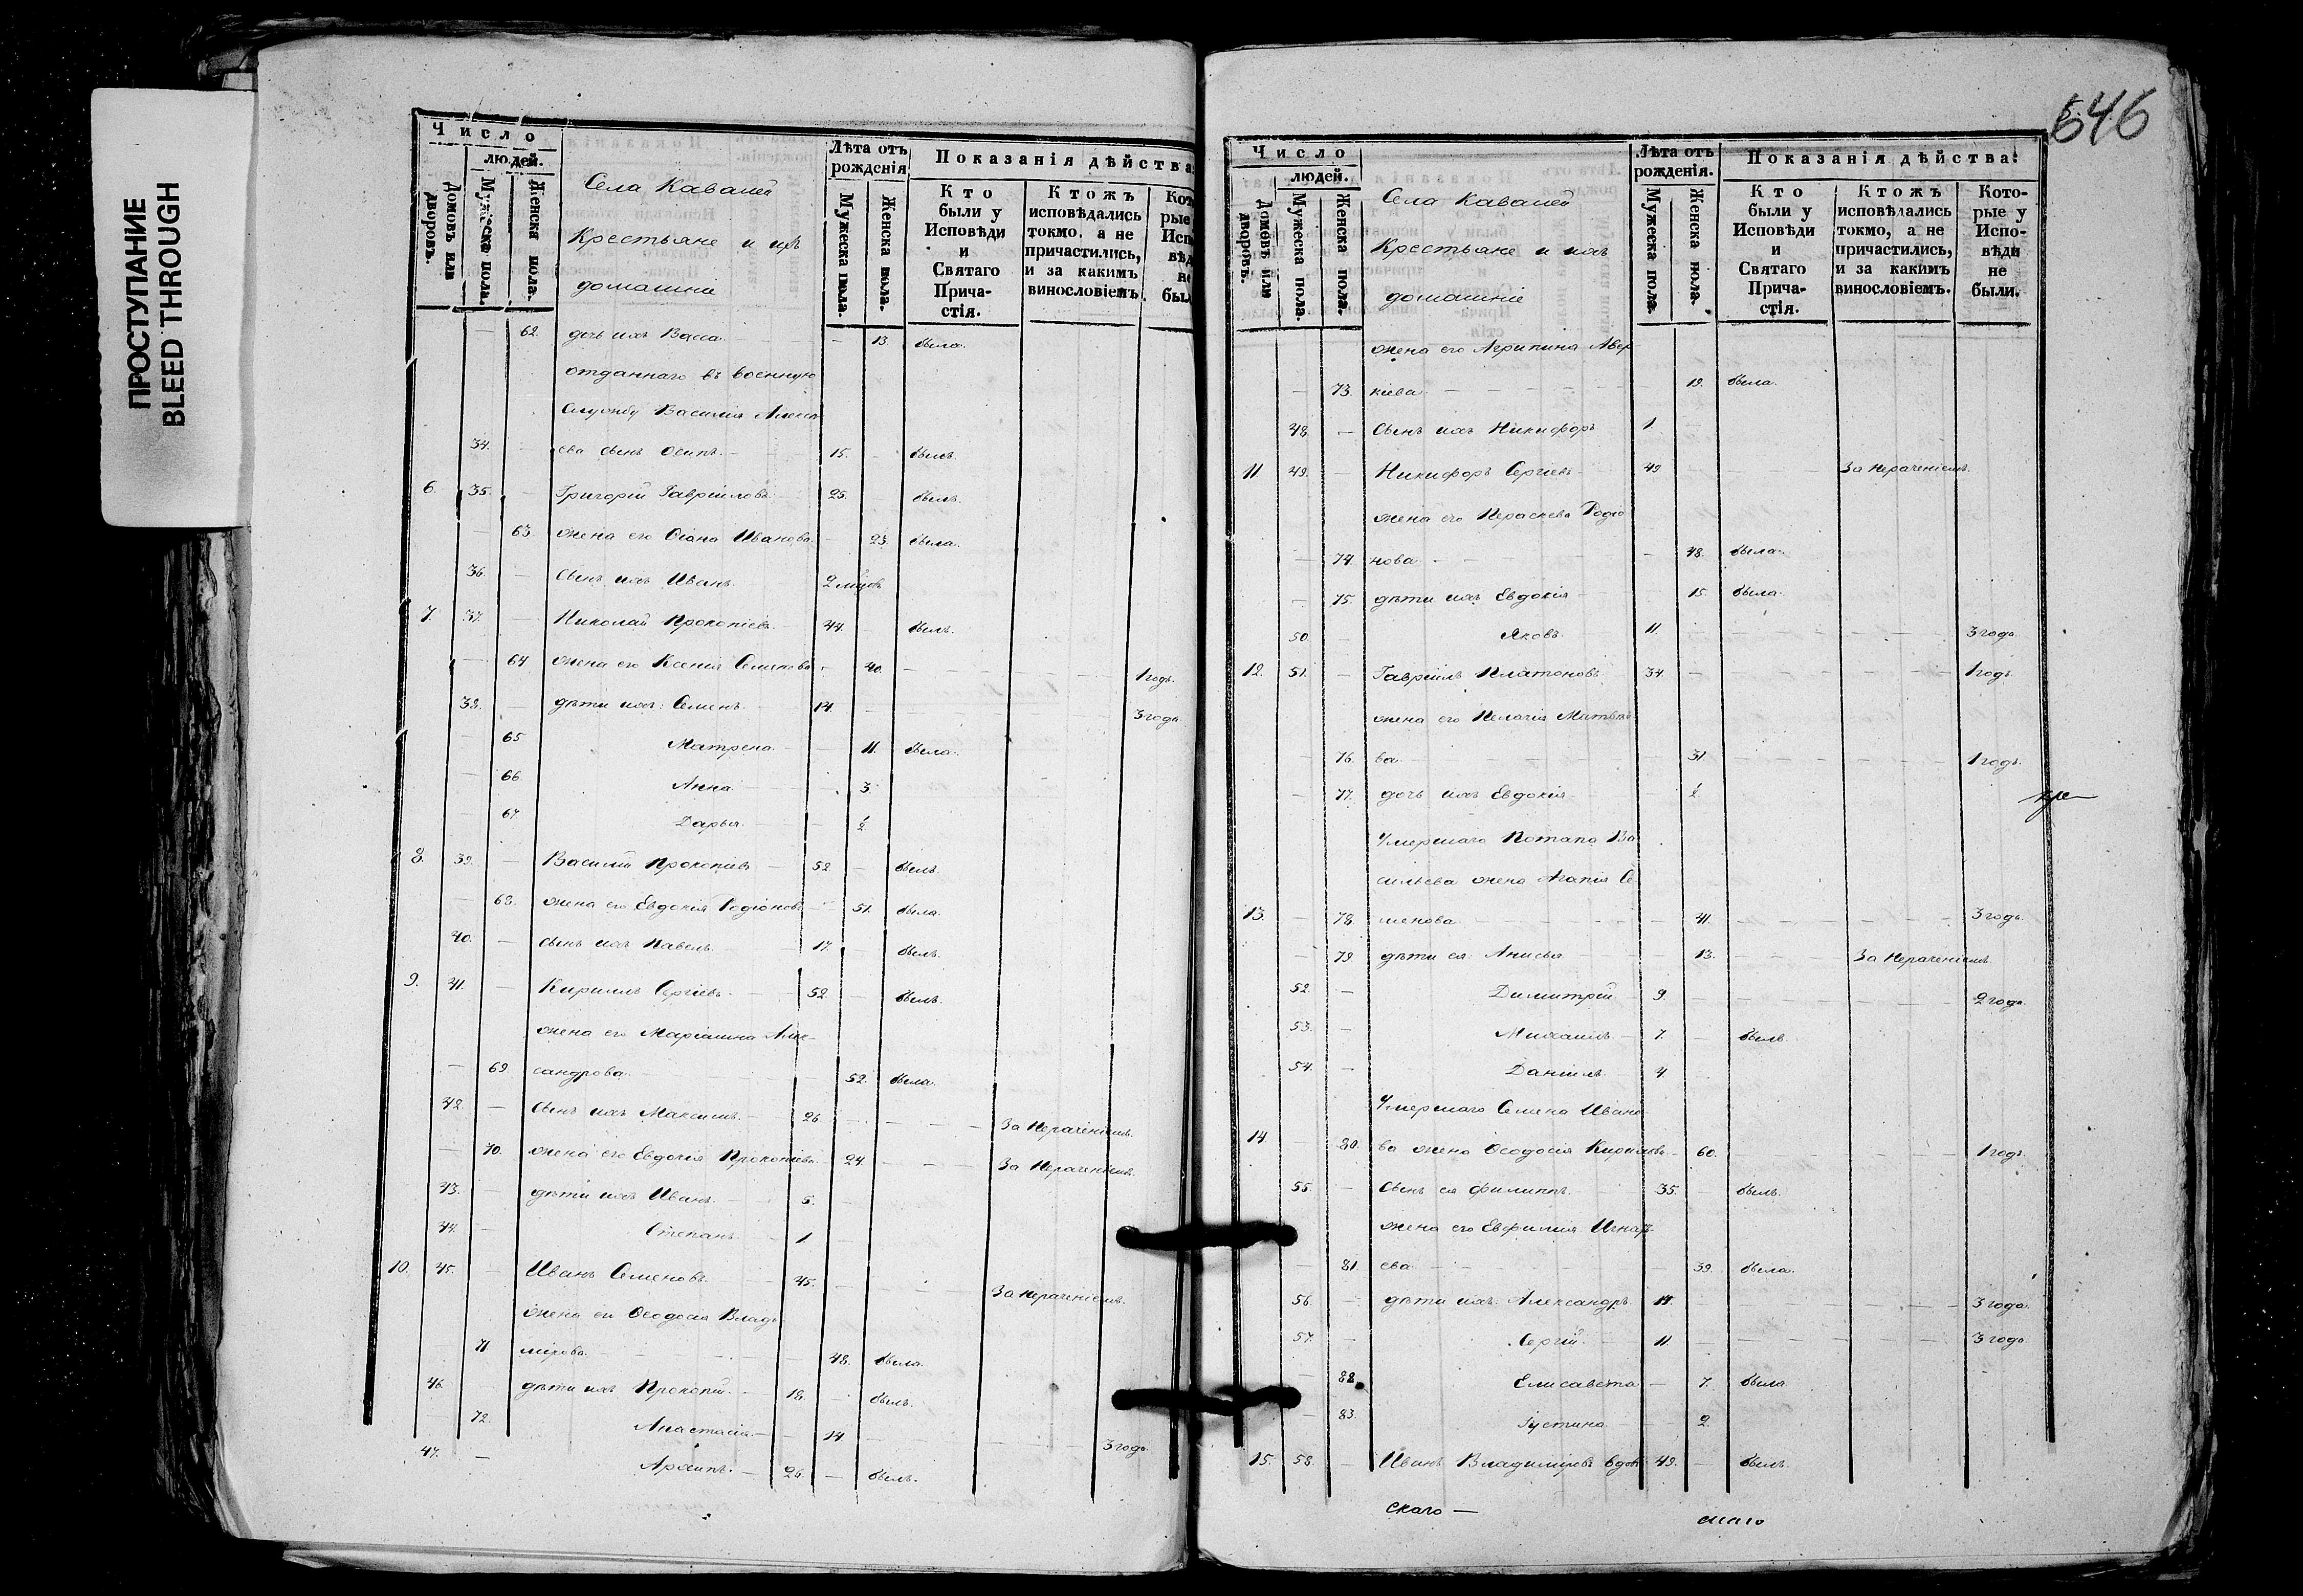 ПРОСТУПАНИЕ
BLEED THROUGH
Число
людей.
Домовъ или дворовъ.
Мужеска пола.
Женска пола.
Села Кавалей
Крестьяне и ихъ
домашніе
Лѣта отъ рожденія
Мужеска пола.
Женска пола.
Показанія дѣйства
Кто были у Исповѣди и Святаго Причастія.
Ктожъ исповѣдались токмо, а не причастились, и за какимъ винословіемъ.
62. дочь ихъ Васса — 13. была.
отданнаго въ военную
службу Василія Алексѣ
34. — ева сынъ Осипъ 15. — былъ.
6. 35. — Григорій Гавріиловъ 25. — былъ.
— 63. жена его Ѳіана Иванова — 23. была.
36. — сынъ ихъ Иванъ
7. 37. — Николай Прокопіевъ 44. былъ.
— 64. жена его Ксенія Семенова — 40. — 1 годъ.
38. — дѣти ихъ: Семенъ 14. — 3 года
— 65 Матрена — 11. была.
— 66 Анна 3.
— 67. Дарья
8. 39. — Василій Прокопіевъ 52 — былъ.
— 68. жена его Евдокія Родіонова — 51. была.
40. — сынъ ихъ Павелъ 17. былъ.
9. 41. — Кириллъ Сергіевъ 52. — былъ.
жена его Маріамна Алек-
— 69. сандрова 52. была.
42. — сынъ ихъ Максимъ 26. — За нераченіемъ.
— 70. жена его Евдокія Прокопіева 24. — За нераченіемъ.
43. — дѣти ихъ Иванъ 5.
44. — Степанъ 1
10. 45. — Иванъ Семеновъ 45. — За нераченіемъ.
жена его Ѳеодосія Влади
71 мірова 48. была.
46. дѣти ихъ Прокопій 18. былъ.
72. Анастасія — 14 — 3 года
47. — Архипъ — 26. — былъ.
646
Число
людей.
Домовъ или дворовъ.
Мужеска пола.
Женска пола.
Села Кавалей
Крестьяне и ихъ
домашніе
Лѣта отъ рожденія.
Мужеска пола.
Женска пола.
Показанія дѣйства:
Кто были у Исповѣди и Святаго Причастія.
Ктожъ исповѣдались токмо, а не причастились, и за какимъ винословіемъ.
Которые у Исповѣди не были.
жена его Агрипина Авер
— 73. кіева — 19. была.
48. — сынъ ихъ Никифоръ 1
11. 49. — Никифоръ Сергіевъ 49 — За нераченіемъ.
жена его Параскева Родіо
— 74 нова — 48. была.
— 75. дѣти ихъ Евдокія 15. была.
50. — Яковъ 11. — 3 года
12. 51. — Гавріилъ Платоновъ 34. — 1 годъ
жена его Пелагія Матвѣе
— 76. ва — 31 — 1 годъ.
— 77. дочь ихъ Евдокія
Умершаго Потапа Ва
сильева жена Агапія Се
13. — 78 менова — 41. — 3 года.
— 79 дѣти ея: Анисья — 13. — За нераченіемъ.
52. — Димитрій 9. — 2 года.
53. — Михаилъ — 7. — былъ
54. — Даніилъ 4.
Умершаго Семена Ивано
14 — 80. ва жена Ѳеодосія Кирилова — 60. — 1 годъ
55. — сынъ ея Филиппъ. 35. — былъ.
жена его Евфимія Игнать
— 81. ева — 39. была.
56. — дѣти ихъ: Александръ 14. — 3 года.
57. — Сергій 11. — 3 года
— 82. Елисавета — 7. была
— 83. Іустина — 2.
15. 58. — Иванъ Владиміровъ вдовъ 49. — былъ.
скаго —